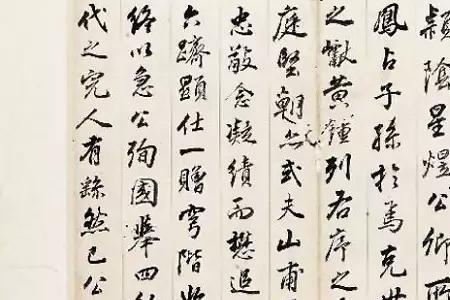 頴陰星煜公卿所
鳳占子孫於焉克世
之獻黃鍾列若序之
庭堅朝式夫山甫
忠敬念凝績而懋追
六躋顯仕一贈穹階
終以急公殉國舉四
代之完人有繇然已公